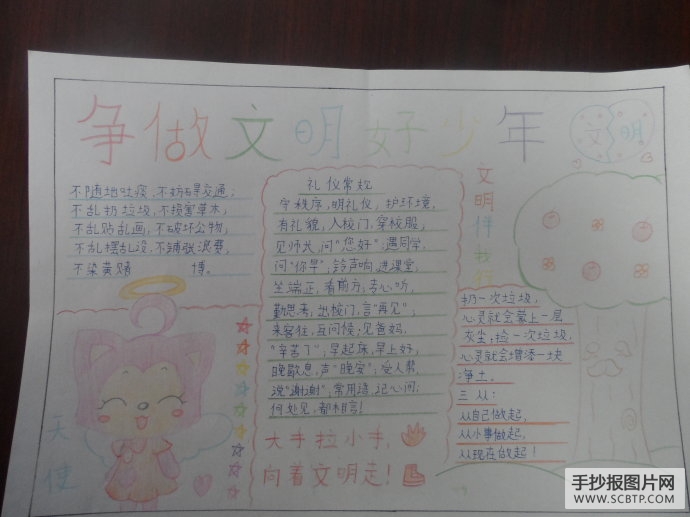 争做文明好少年
文明
不随地吐痰,不妨碍交通;
不乱扔垃圾,不损害草木,
不乱贴乱画,不破坏公物,
不乱摆乱设,不铺张浪费,
不染黄赌 博。
天使
礼仪常规
守秩序,明礼仪,护环境,
有礼貌,入校门,穿校服,
见师大,问“您好”;遇同学,
问“你早”;铃声响,进课堂,
坐端正,看前方;专心听,
勤思考;出校门,言“再见”;
来客往,互问候;见爸妈,
“辛苦了”;早起床,早上好,
晚歇息,声“晚安”;受人帮,
说“谢谢”;常用语,记心间;
何处见,都相宜!
大手拉小手,
向着文明走!
文明伴我行
扔一次垃圾,
心灵就会蒙上一层
灰尘;捡一次垃圾,
心灵就会增添一块
净土。
三从:
从自己做起,
从小事做起,
从现在做起!
手抄报图片网
WWW.SCBTP.COM